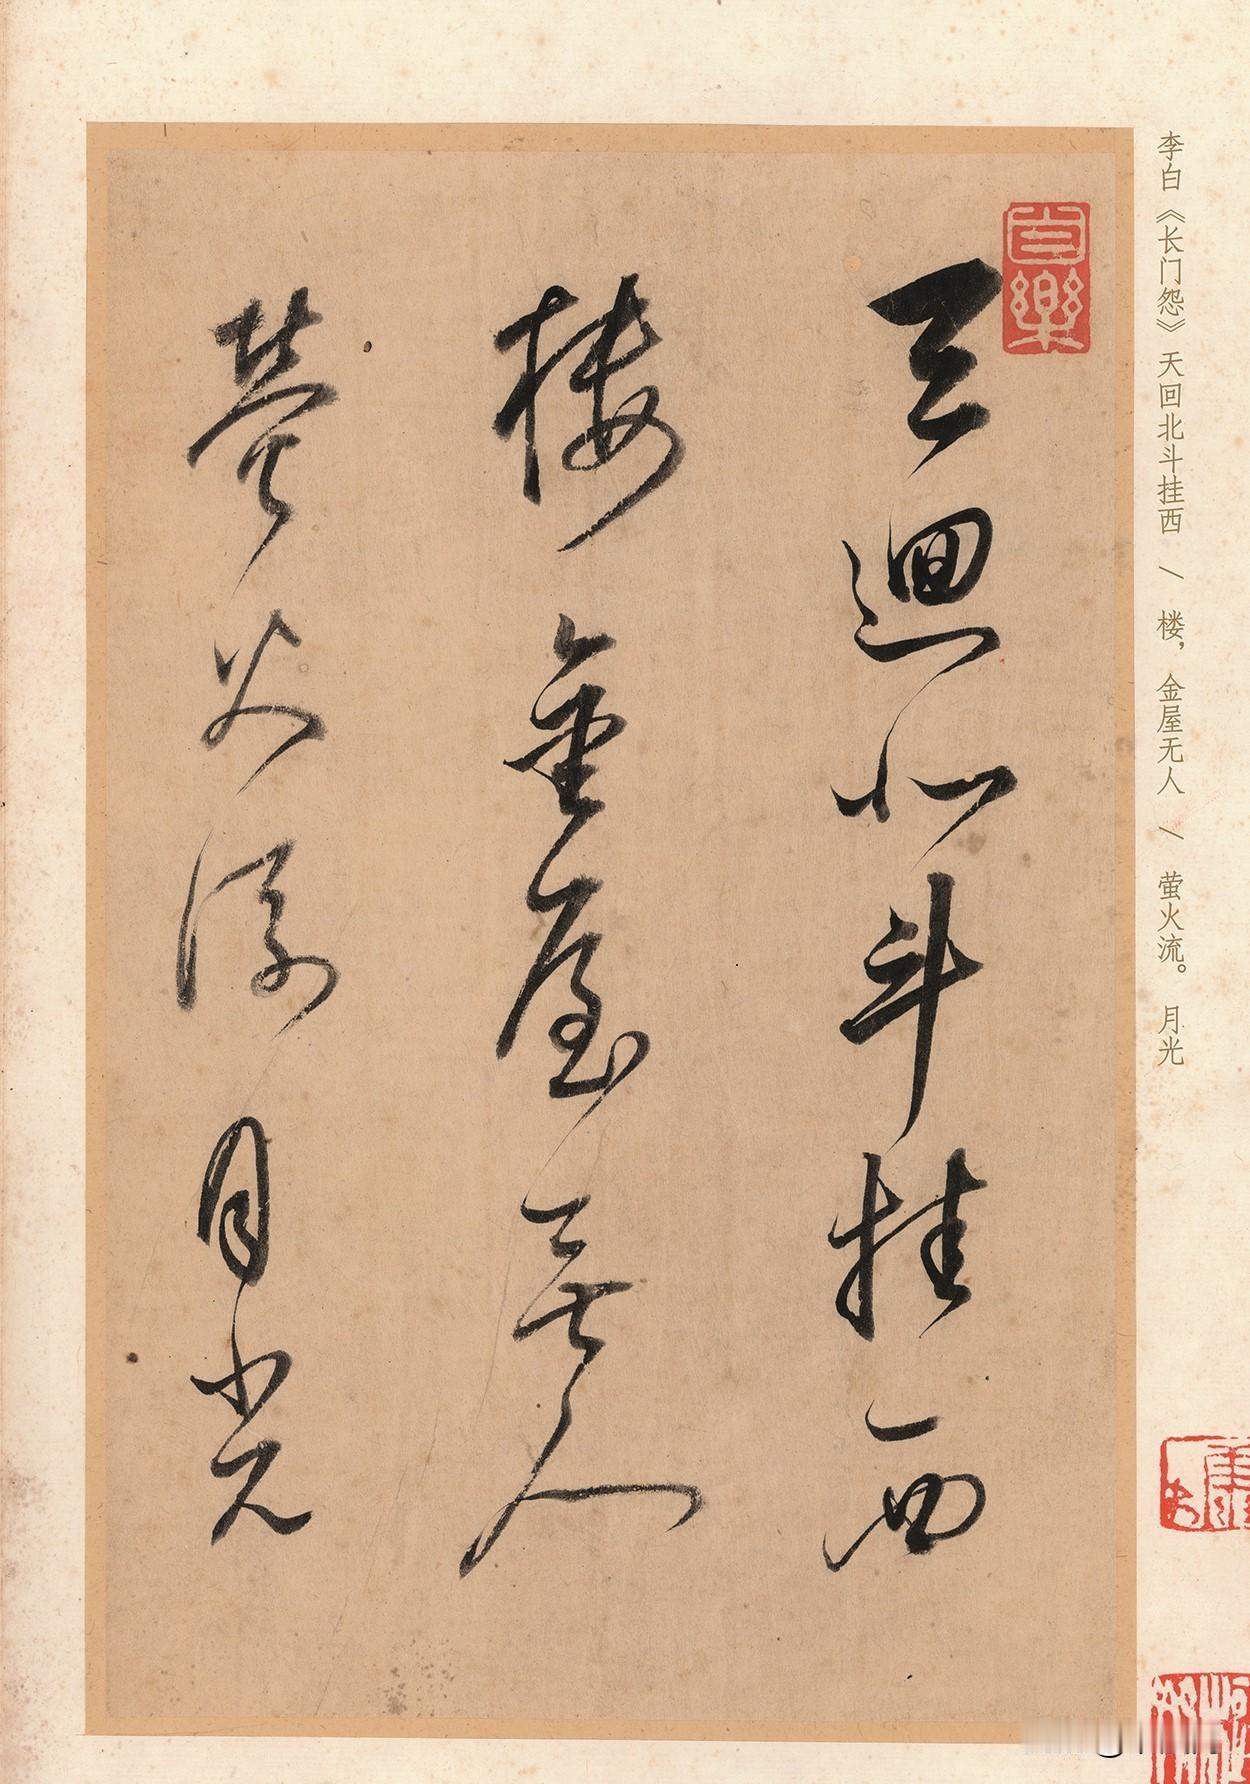 李白《长门怨》天回北斗挂西 \ 楼，金屋无人 \ 萤火流。 月光
天迴北斗挂西
樓金屋無人
螢火流月光